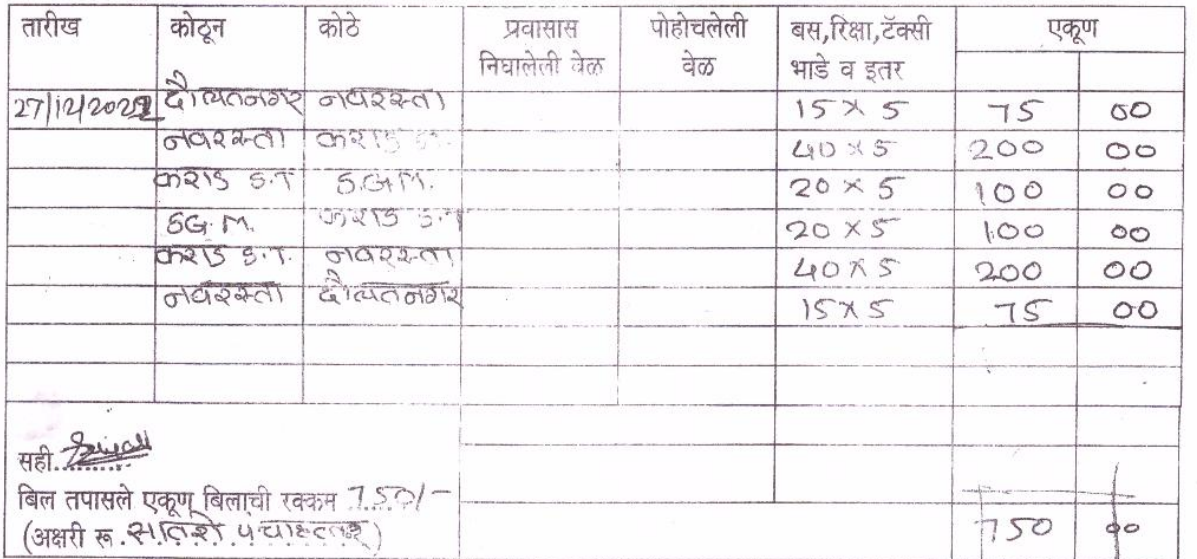 तारीख कोठून कोठे प्रवासास निघालेली वेळ पोहोचलेली वेळ बस,रिक्षा,टॅक्सी भाडे व इतर एकूण
27/12/2022 दौलतनगर नवरस्ता 15 × 5 75 00
नवरस्ता कराड S.T. 40 × 5 200 00
कराड S.T S.G.M. 20 × 5 100 00
SG.M. कराड S.T 20 × 5 100 00
कराड S.T. नवरस्ता 40 × 5 200 00
नवरस्ता दौलतनगर 15 × 5 75 00
सही.
बिल तपासले एकूण बिलाची रक्कम 750/-
(अक्षरी रू. सातशे पंचाहत्तर)
750 00